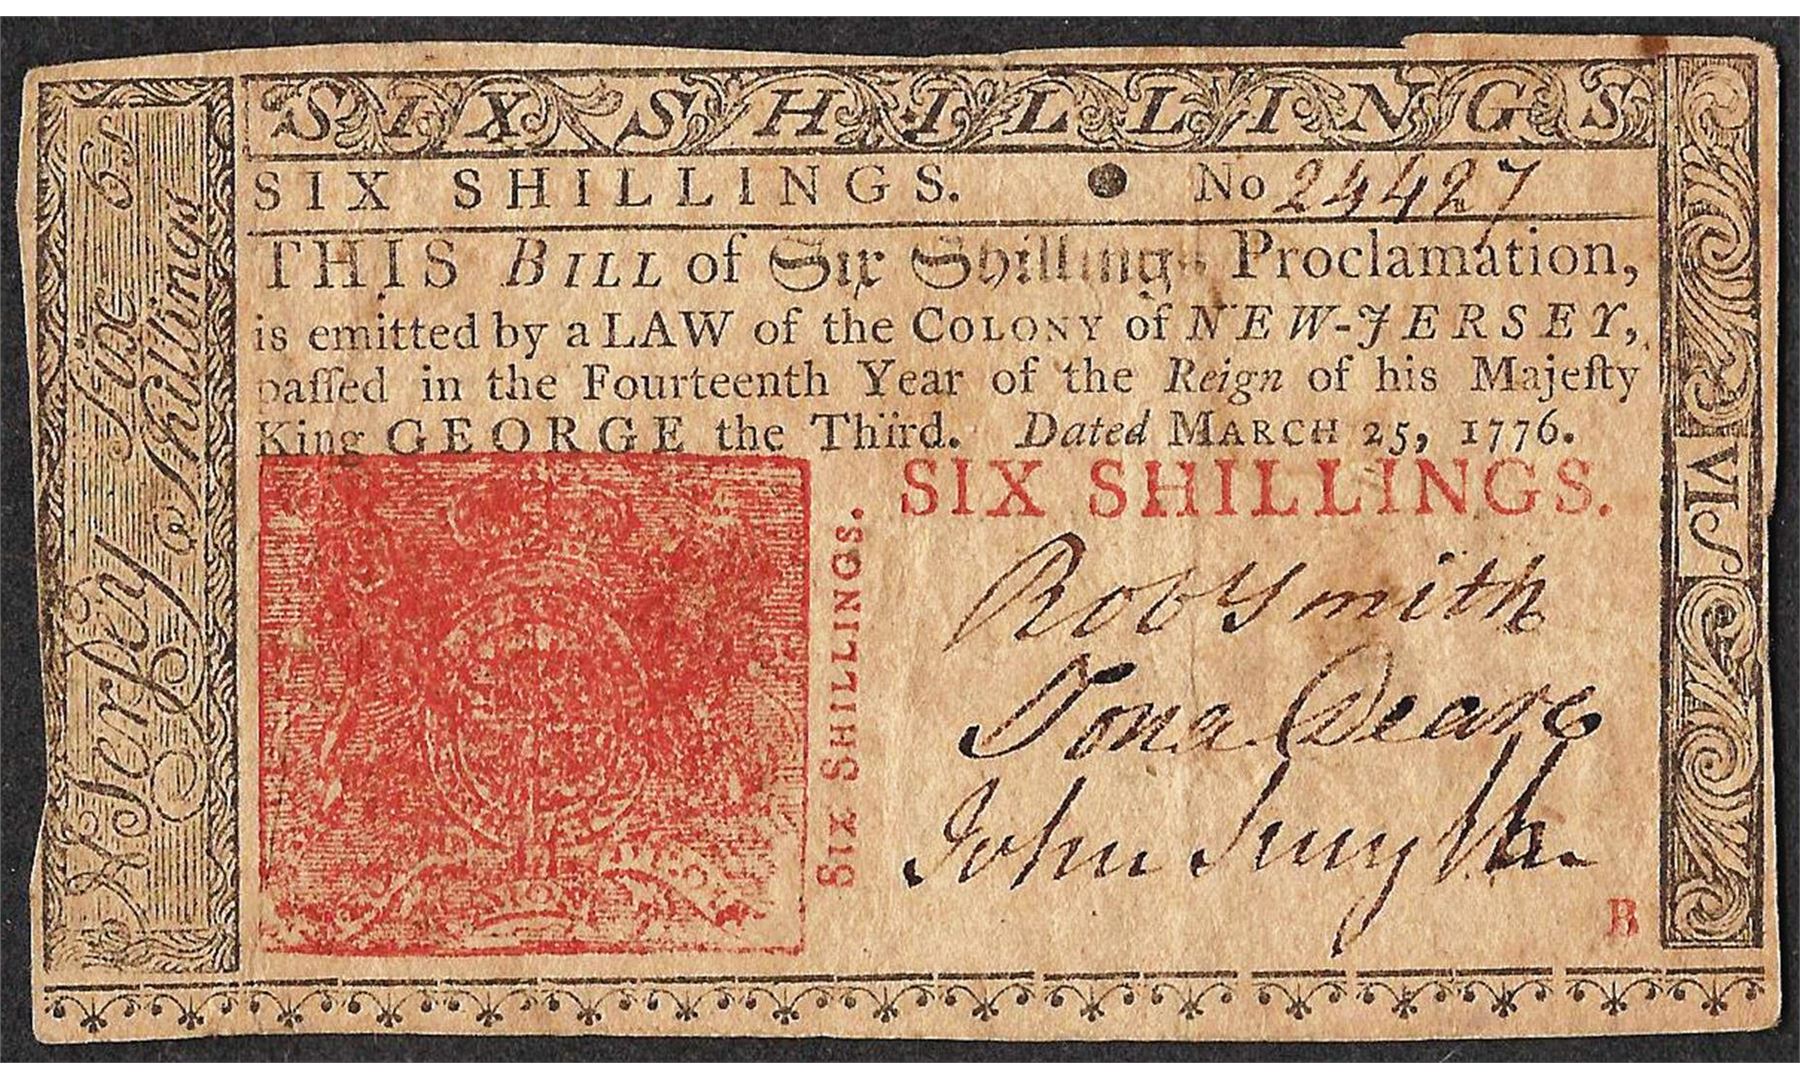 SIX SHILLINGS
SIX SHILLINGS. No 24427
THIS BILL of Six Shillings Proclamation,
is emitted by a LAW of the COLONY of NEW-JERSEY,
paſſed in the Fourteenth Year of the Reign of his Majeſty
King GEORGE the Third. Dated MARCH 25, 1776.
SIX SHILLINGS.
SIX SHILLINGS.
Robt Smith
Jona Deare
John Smyth
B
Jerſey Six Shillings 6s
VIS